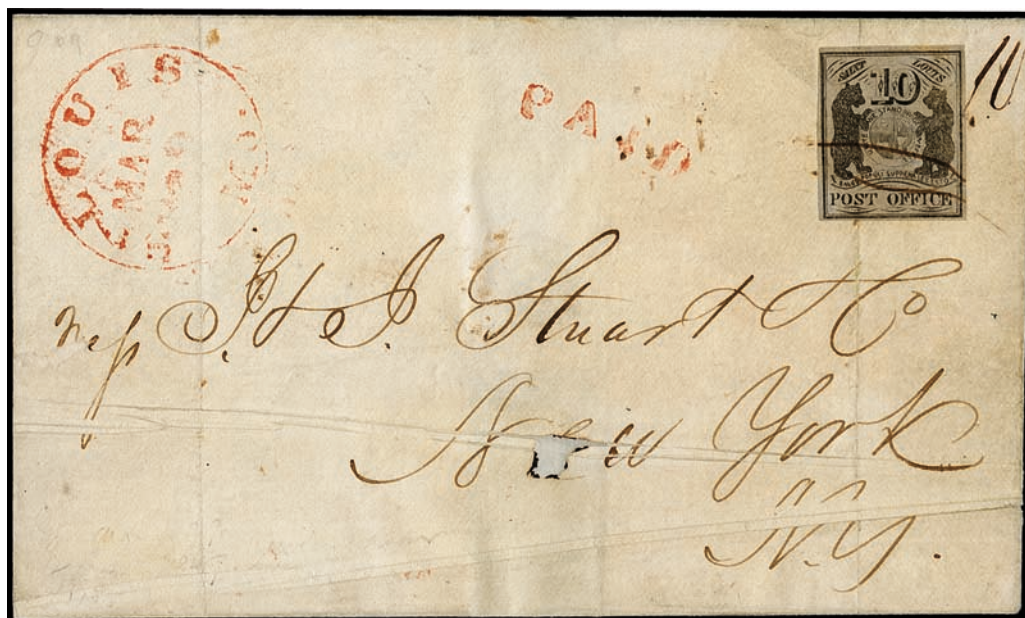 LOUIS
MAR
MO.
PAID
10
SAINT LOUIS
10
POST OFFICE
Mess J. & J. Stuart & Co
New York
N.Y.